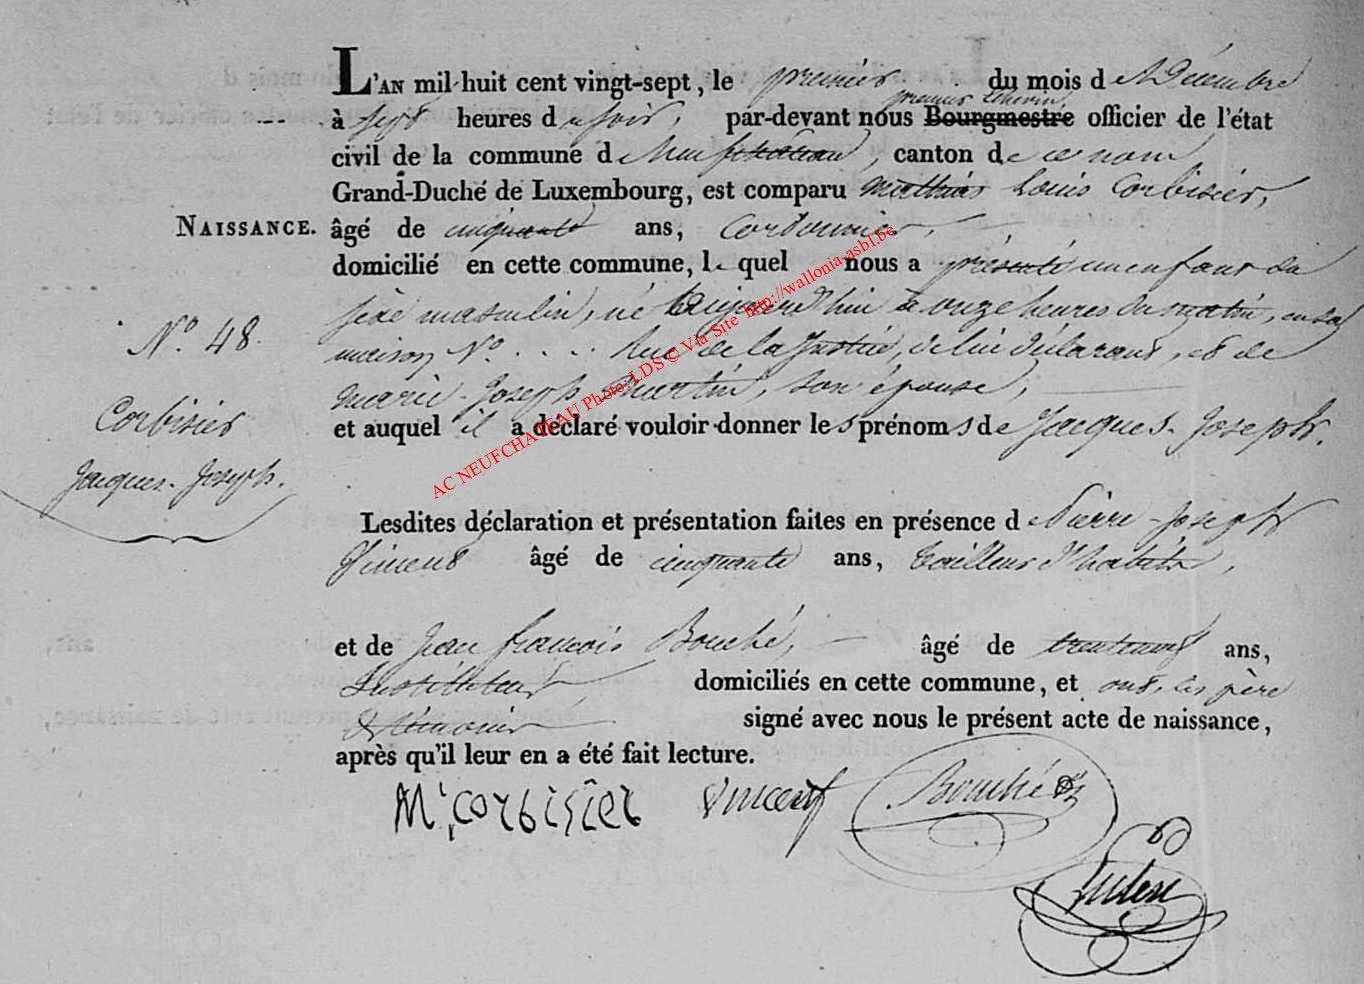 L'AN mil-huit cent vingt-sept, le premier du mois de Décembre
premier Echevin,
à sept heures du soir, par-devant nous Bourgmestre officier de l'état
civil de la commune de Neufchateau, canton de ce nom
Grand-Duché de Luxembourg, est comparu Mathieu Louis Corbisier,
NAISSANCE. âgé de cinquante ans, Cordonnier,
domicilié en cette commune, lequel nous a présenté un enfant du
sexe masculin, né aujourd'hui à onze heures du matin, en sa
N.º 48.
maison N.º .... Rue de la Justice, de lui déclarant, et de
Marie-Joseph Martin, son épouse,
Corbisier
et auquel il a déclaré vouloir donner les prénoms de Jacques-Joseph.
Jacques-Joseph.
Lesdites déclaration et présentation faites en présence de Pierre-Joseph
âgé de cinquante ans, tailleur d'habits,
et de Jean françois Bouché, âgé de trenteneuf ans,
Instituteur domiciliés en cette commune, et ont, les père
& témoins signé avec nous le présent acte de naissance,
après qu'il leur en a été fait lecture.
M; corbisier Vincent Bouché
AC NEUFCHATEAU Photo: LDS © Via Site http://wallonia-asbl.be